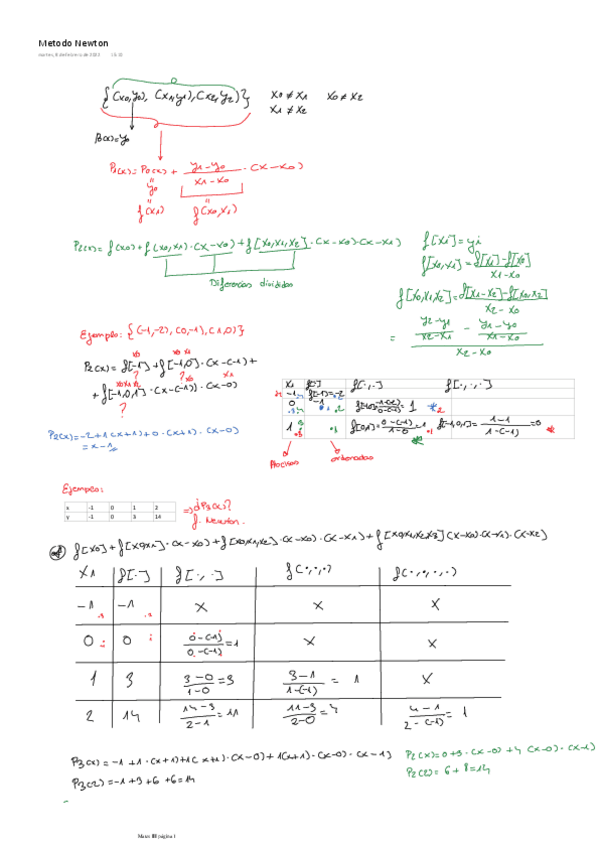 Metodo Newton
{(x0,y0), (x1,y1), (x2,y2)} x0 ≠ x1 x0 ≠ x2
x1 ≠ x2
P0(x)=y0
P1(x)= P0(x) + (y1-y0)/(x1-x0) · (x-x0)
y0
f(x1) f(x0,x1)
P2(x)= f(x0)+f(x0,x1)·(x-x0)+f[x0,x1,x2]·(x-x0)·(x-x1)
Diferencias divididas
f[xi]=yi
f[x0,x1]=(f[x1]-f[x0])/(x1-x0)
f[x0,x1,x2]=(f[x1-x2]-f[x0,x2])/(x2-x0)
= ((y2-y1)/(x2-x1) - (y1-y0)/(x1-x0))/(x2-x0)
Ejemplo: {(-1,-2), (0,-1), (1,0)}
P2(x)= f[-1]+f[-1,0]·(x-(-1)+
+f[-1,0,1]·(x-(-1))·(x-0)
? ? ?
P2(x)=-2+1(x+1)+0·(x+1)·(x-0)
= x-1
xi f[·] f[·,·] f[·,·,·]
-1 f[-1]=-2
0 -1 f[-1,0]=(-1-(-2))/(0-(-1))=1
1 f[0,1]=(0-(-1))/(1-0)=1 f[-1,0,1]=(1-1)/(1-(-1))=0
Abscisas ordenadas
Ejemplo:
x -1 0 1 2
y -1 0 3 14
⇒¿P3(x)?
f. Newton.
f[x0]+f[x0,x1]·(x-x0)+f[x0,x1,x2]·(x-x0)·(x-x1)+f[x0,x1,x2,x3](x-x0)·(x-x1)·(x-x2)
xi f[·] f[·,·] f(·,·,·) f(·,·,·,·)
-1 -1 x x x
0 0 (0-(-1))/(0-(-1))=1 x x
1 3 (3-0)/(1-0)=3 (3-1)/(1-(-1)) = 1 x
2 14 (14-3)/(2-1)=11 (11-3)/(2-0)=4 (4-1)/(2-(-1)) = 1
P3(x)=-1+1·(x+1)+1(x+1)·(x-0)+1(x+1)·(x-0)·(x-1)
P3(2)=-1+3+6+6=14
P2(x)=0+3·(x-0)+4(x-0)·(x-1)
P2(2)= 6+8=14
Mates III página 1